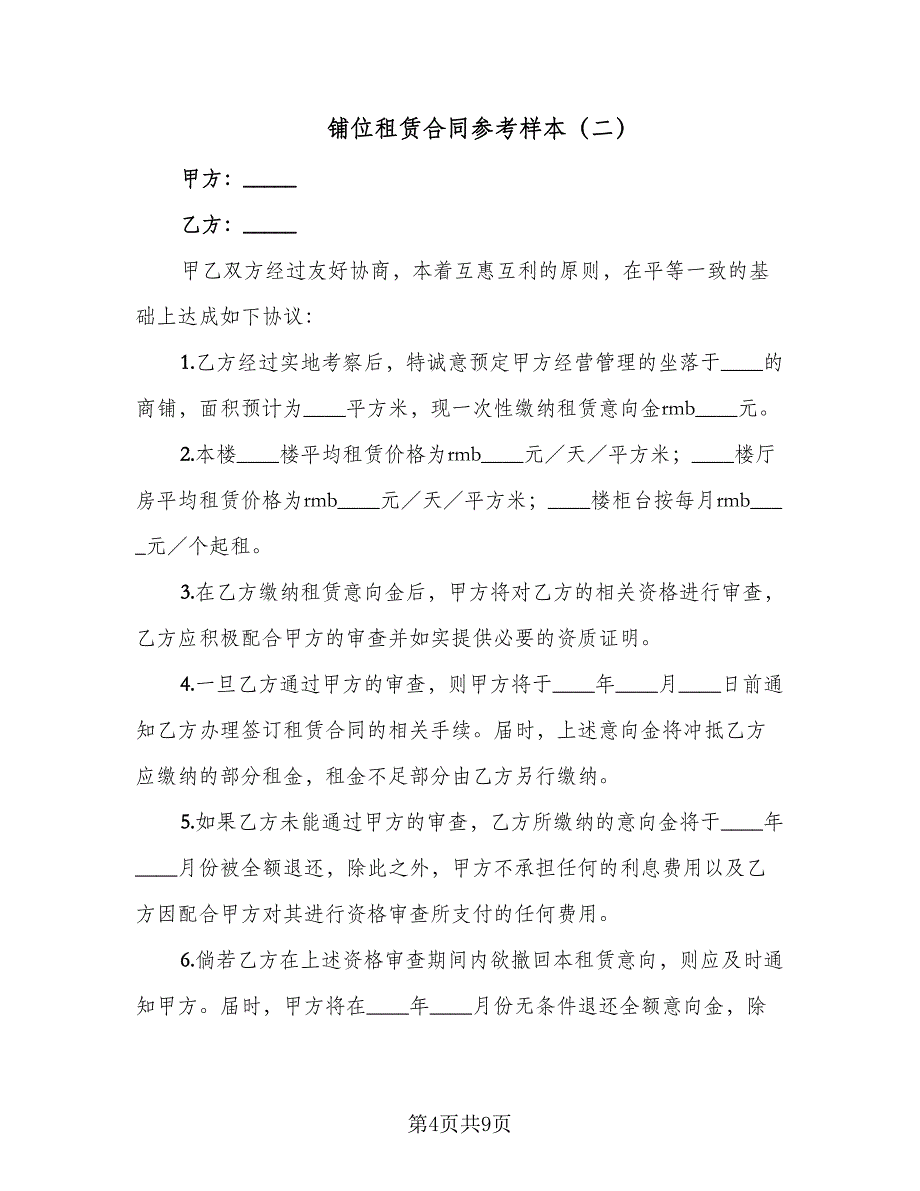 铺位租赁合同参考样本（二）
甲方：_____
乙方：_____
甲乙双方经过友好协商，本着互惠互利的原则，在平等一致的基
础上达成如下协议：
1.乙方经过实地考察后，特诚意预定甲方经营管理的坐落于____的
商铺，面积预计为____平方米，现一次性缴纳租赁意向金rmb____元。
2.本楼____楼平均租赁价格为rmb____元／天／平方米；____楼厅
房平均租赁价格为rmb____元／天／平方米；____楼柜台按每月rmb___
_元／个起租。
3.在乙方缴纳租赁意向金后，甲方将对乙方的相关资格进行审查，
乙方应积极配合甲方的审查并如实提供必要的资质证明。
4.一旦乙方通过甲方的审查，则甲方将于____年____月____日前通
知乙方办理签订租赁合同的相关手续。届时，上述意向金将冲抵乙方
应缴纳的部分租金，租金不足部分由乙方另行缴纳。
5.如果乙方未能通过甲方的审查，乙方所缴纳的意向金将于____年
____月份被全额退还，除此之外，甲方不承担任何的利息费用以及乙
方因配合甲方对其进行资格审查所支付的任何费用。
6.倘若乙方在上述资格审查期间内欲撤回本租赁意向，则应及时通
知甲方。届时，甲方将在____年____月份无条件退还全额意向金，除
第4页共9页